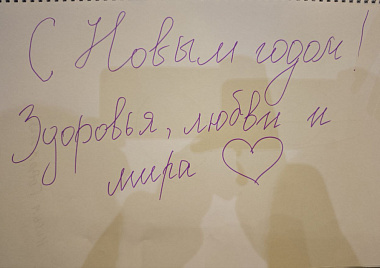 С Новым годом!
Здоровья, любви и
мира ♡